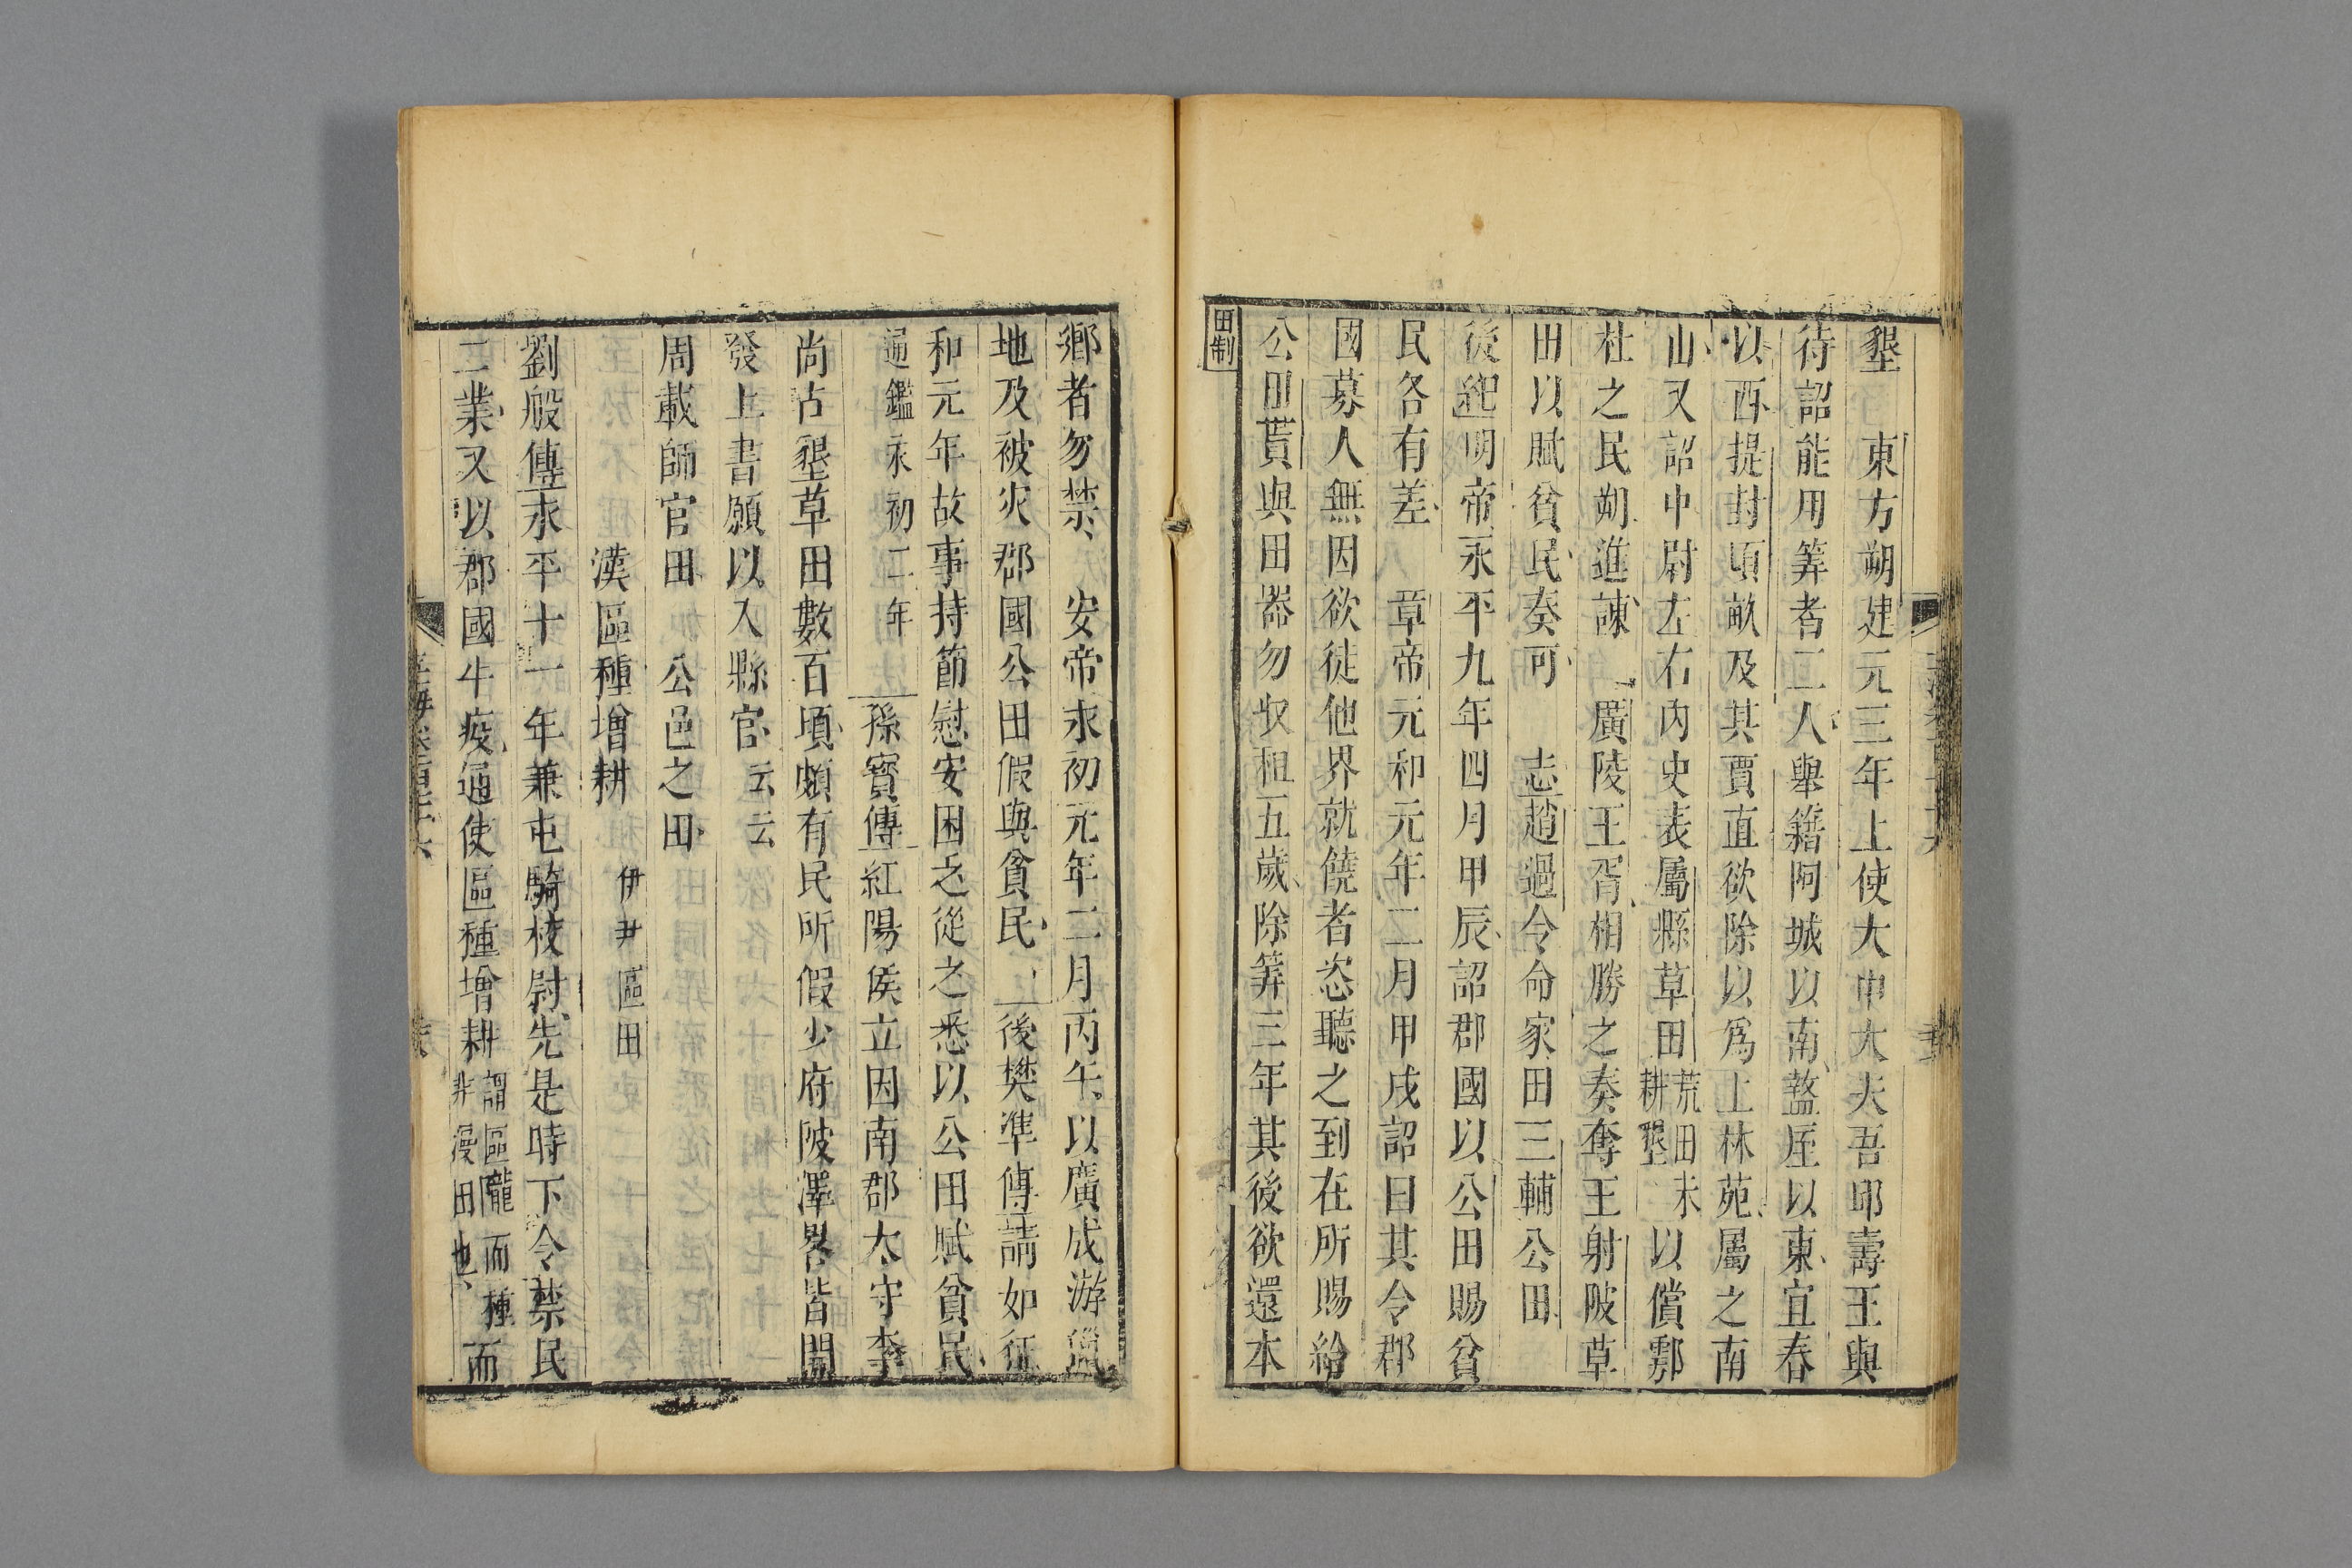 墾　東方朔建元三年上使太中大夫吾邱壽王與
待詔能用筭者二人舉籍阿城以南盩厔以東宜春
以西提封頃畝及其賈直欲除以爲上林苑屬之南
山又詔中尉左右內史表屬縣草田荒田未耕墾以償鄠
杜之民朔進諫　廣陵王胥相勝之奏奪王射陂草
田以賦貧民奏可　志趙過令命家田三輔公田
後紀明帝永平九年四月甲辰詔郡國以公田賜貧
民各有差　章帝元和元年二月甲戌詔曰其令郡
國募人無田欲徙他界就饒者恣聽之到在所賜給
公田貰與田器勿收租五歲除筭三年其後欲還本
田制
鄉者勿禁　安帝永初元年二月丙午以廣成游獵
地及被灾郡國公田假與貧民　後樊準傳請如征
和元年故事持節慰安困乏從之悉以公田賦貧民
通鑑永初二年　孫寶傳紅陽侯立因南郡太守李
尚占墾草田數百頃頗有民所假少府陂澤畧皆開
發上書願以入縣官云云
周載師官田　公邑之田
漢區種增耕　伊尹區田
劉般傳永平十一年兼屯騎校尉先是時下令禁民
二業又以郡國牛疫通使區種增耕謂區隴而種非漫田也而